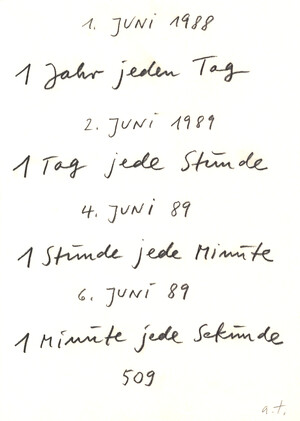 1. JUNI 1988
1 Jahr jeden Tag
2. JUNI 1989
1 Tag jede Stunde
4. JUNI 89
1 Stunde jede Minute
6. JUNI 89
1 Minute jede Sekunde
509
a.t.